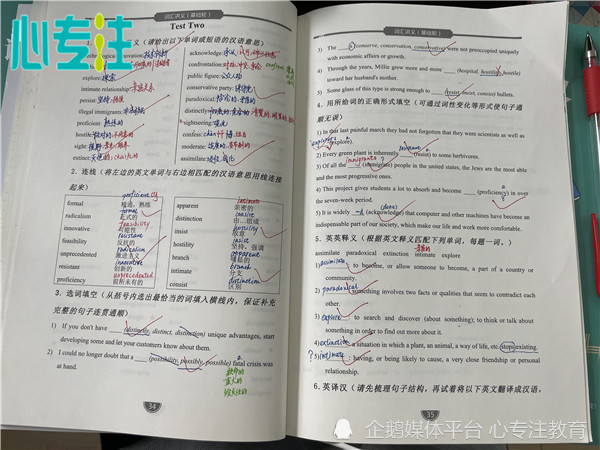 心专注
词汇讲义（基础轮）
Test Two
义（请给出以下单词或短语的汉语意思）
acknowledge:承认
confrontation:
explore:探索
public figure:公众人物
intimate relationship:亲密关系
conservative party:保守党
persist:坚持
paradoxical:
illegal immigrants:
distinctly:
proficient:熟练的
sightseeing:观光
hostile:敌对的
confess:
sight:
moderate:
extinct:
assimilate:
2. 连线（将左边的英文单词与右边相匹配的汉语意思用线连接
起来）
formal
精通，熟练
apparent
亲密的
radicalism
正式的
distinction
由…组成
innovative
可能性
insist
敌意
feasibility
反抗的
hostility
坚持，强调
unprecedented
激进主义
branch
明显的
resistant
创新的
intimate
分支
proficiency
前所未有的
consist
区别
3. 选词填空（从括号内选出最恰当的词填入横线内，保证补充
完整的句子连贯通顺）
1) If you don't have ____ (distinctly, distinct, distinction) unique advantages, start
developing some and let your customers know about them.
2) I could no longer doubt that a ____ (possibility, possibly, possible) fatal crisis was
at hand.
34
词汇讲义（基础轮）
3) The ____ (conserve, conservation, conservative) were not preoccupied uniquely
with economic affairs or growth.
4) Through the years, Millie grew more and more ____ (hospital, hostility, hostile)
toward her husband's mother.
5) Some glass of this type is strong enough to ____ (resist, insist, consist) bullets.
4. 用所给词的正确形式填空（可通过词性变化等形式使句子通
顺无误）
1) In this last painful march they had not forgotten that they were scientists as well as
explorers (explore).
2) Every green plant is inherently resistant (resist) to some herbivores.
3) Of all the immigrants (immigrate) people in the united states, the Jews are the most able
and the most progressive ones.
4) This project gives students a lot to absorb and become ____ (proficiency) in over
the seven-week period.
5) It is widely ____ (acknowledge) that computer and other machines have become an
indispensable part of our society, which make our life and work more comfortable.
5. 英英释义（根据英文释义匹配下列单词，每题一词。）
assimilate paradoxical extinction intimate explore
1) assimilate: to become, or allow someone to become, a part of a country or
community.
2) paradoxical: something involves two facts or qualities that seem to contradict each
other.
3) explore: to search and discover (about something); to think or talk about
something in order to find out more about it.
4) extinction: a situation in which a plant, an animal, a way of life, etc. stops existing.
5) intimate: having, or being likely to cause, a very close friendship or personal
relationship.
6. 英译汉（请先梳理句子结构，再试着将以下英文翻译成汉语，
35
企鹅媒体平台 心专注教育